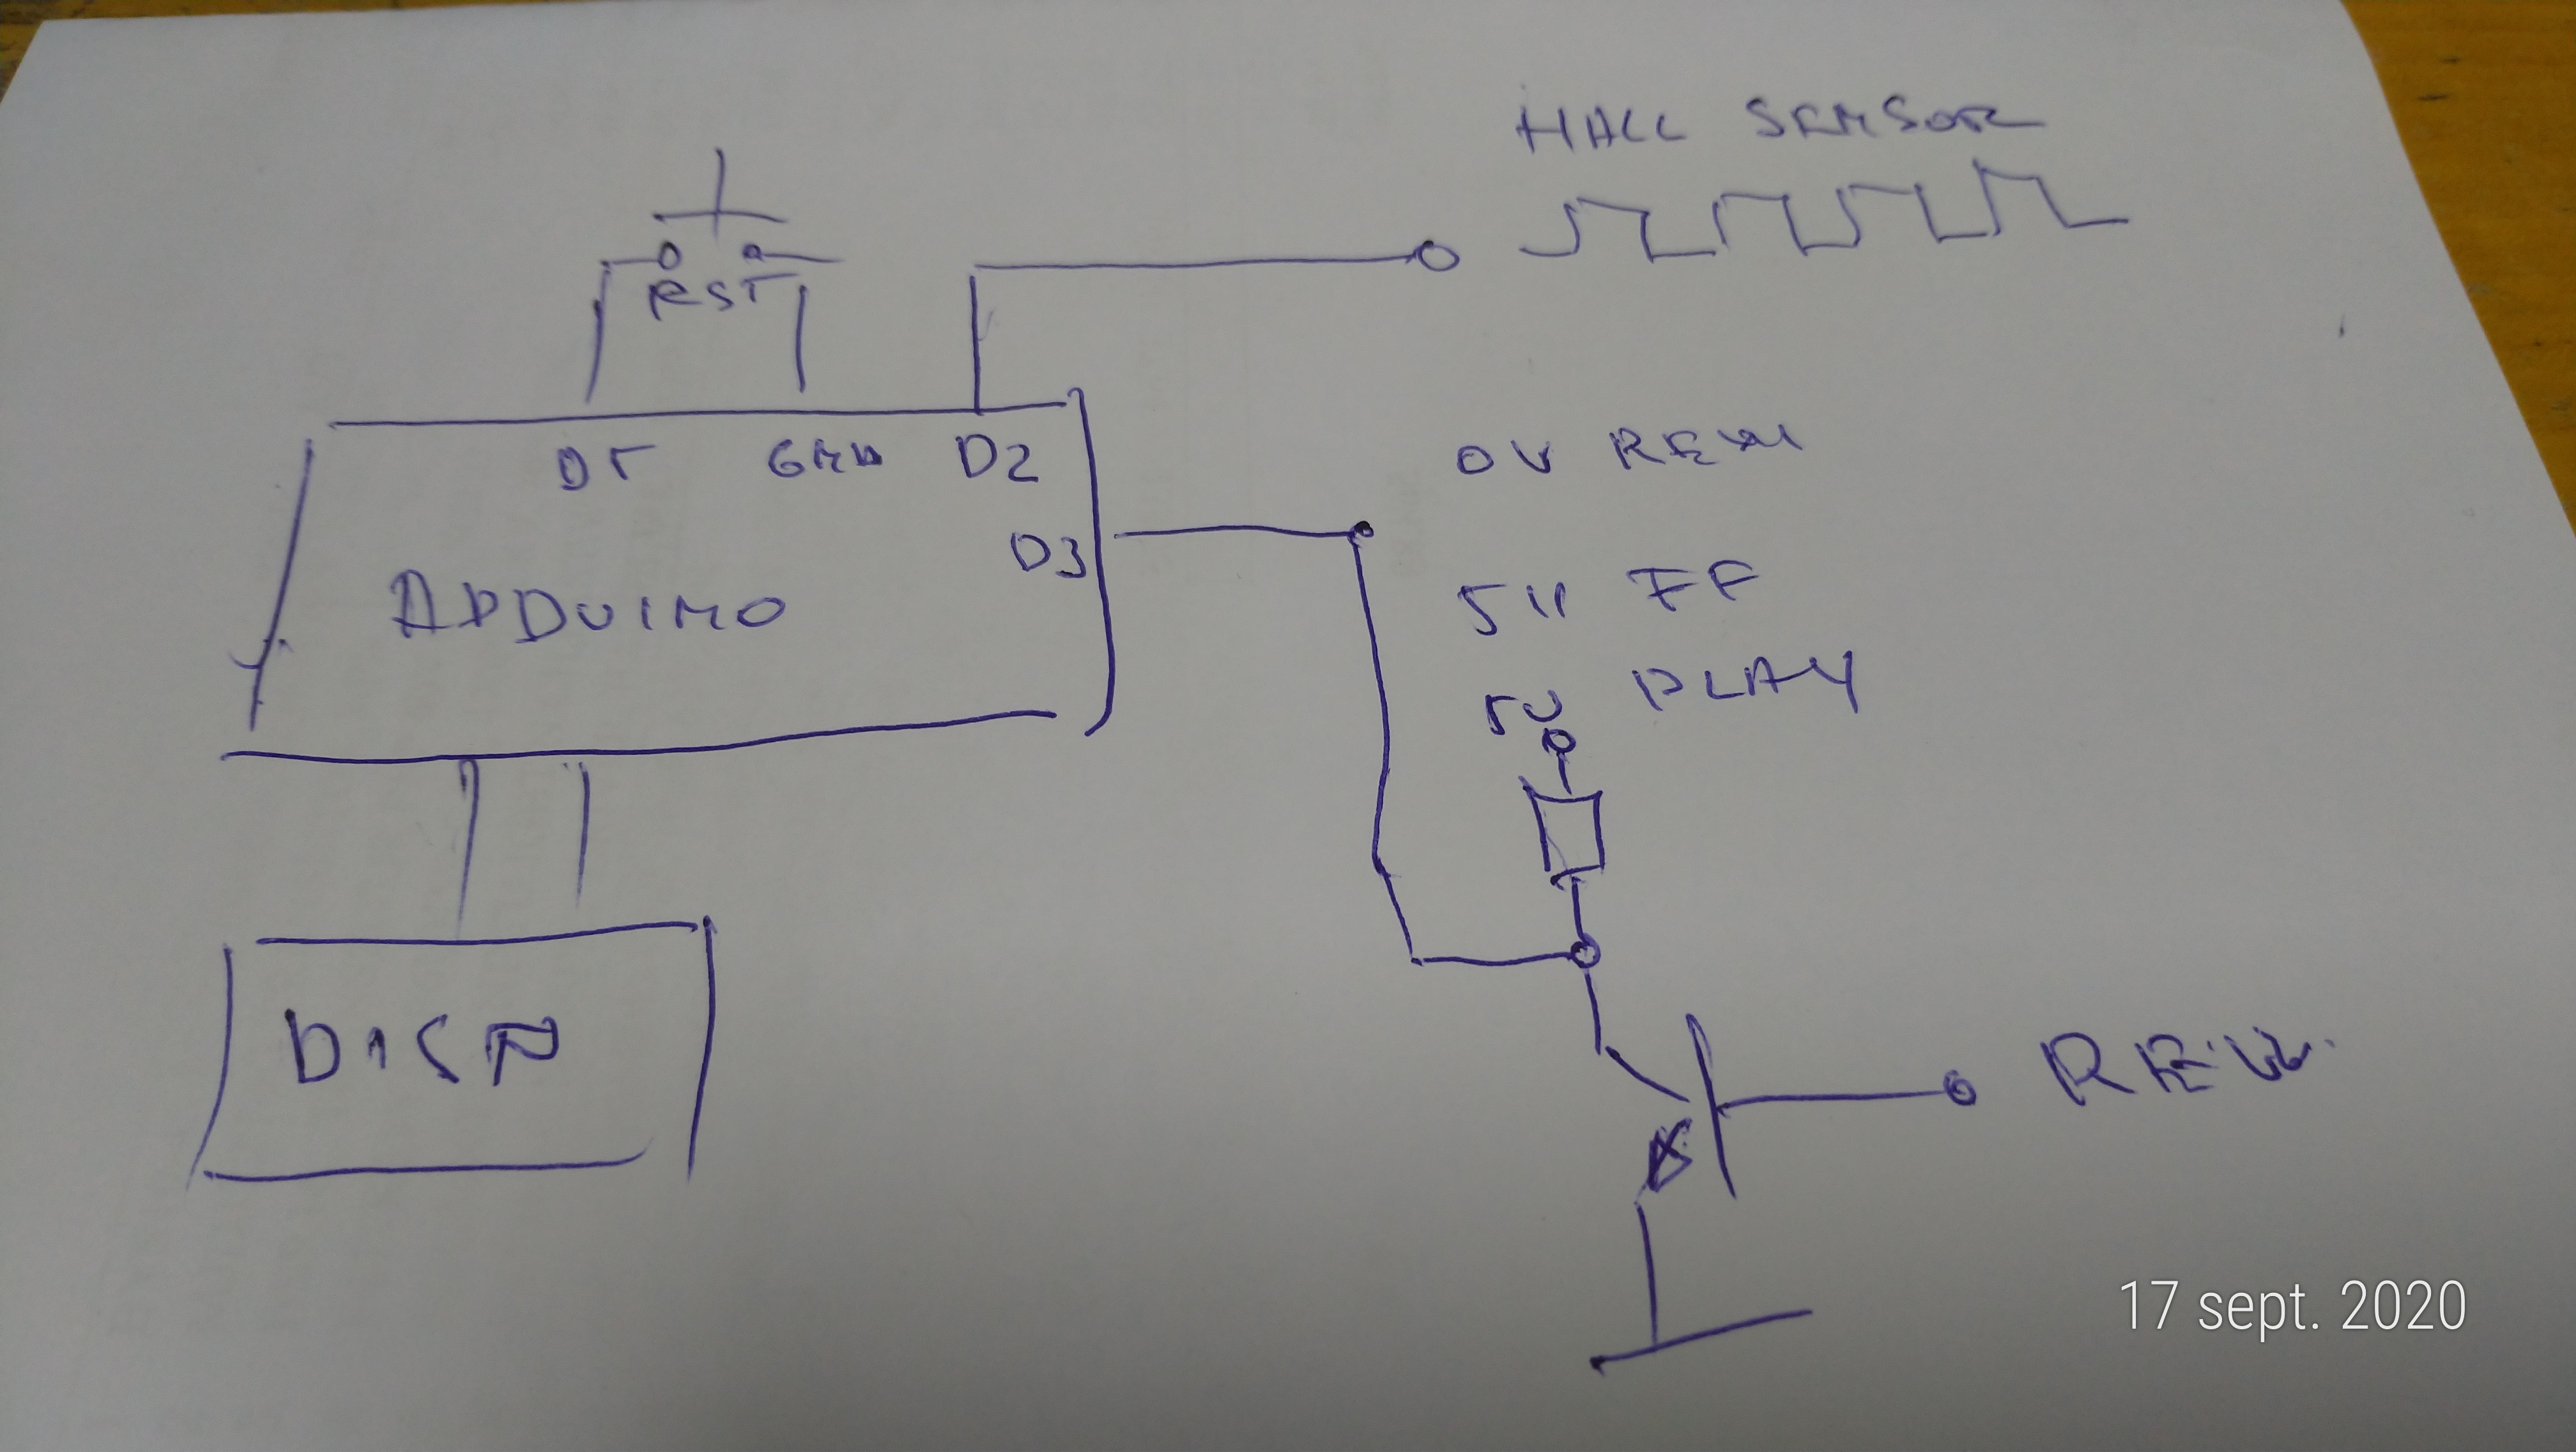 HALL SENSOR
RST
D5 GND D2
D3
ARDUINO
0V REW
5V FF
PLAY
5V
DISP
REW.
17 sept. 2020